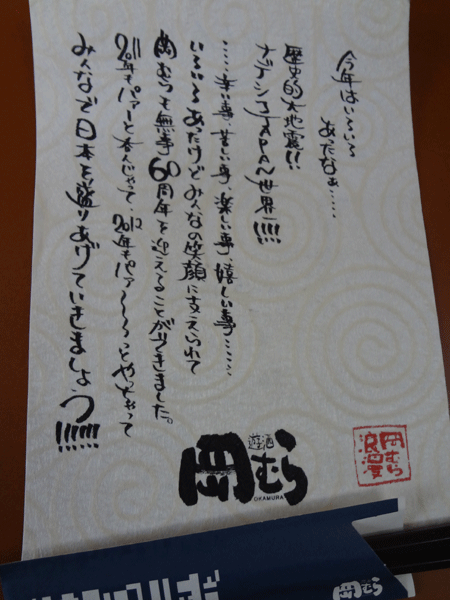 今年はいろいろ
あったなぁ……
歴史的大地震!!
ナデシコJAPAN世界一!!!!!
……辛い事、苦しい事、楽しい事、嬉しい事……
いろいろあったけどみんなの笑顔に支えられて
岡むらも無事60周年を迎えることができました。
2011年もパァーと呑んじゃって、2012年もパァ〜〜〜っとやっちゃって
みんなで日本を盛りあげていきましょう!!!!!!
遊酒
岡むら
OKAMURA
岡むら
浪漫
岡むら